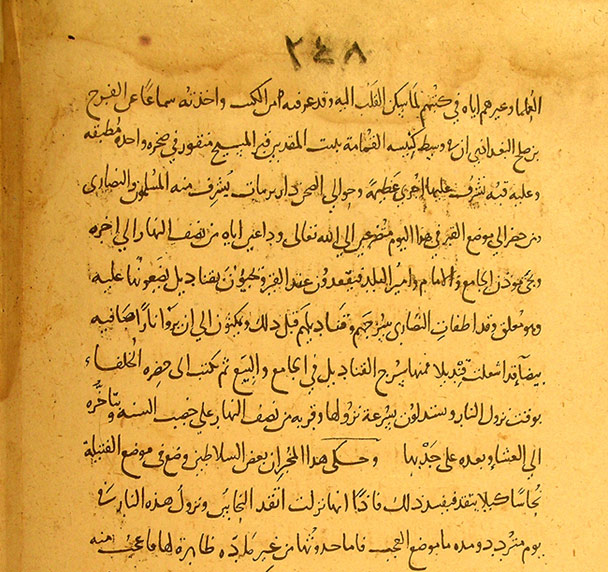 العلما وغيرهم اياه في كتبهم لما سكن القلب اليه وقد عرفته من الكتب واخذته سماعًا عن الفرج
بن صلح البغدادي ان في وسط كنيسه القمامة ببيت المقدس قبر المسيح منقور في صخره واحده مطبقه
وعليه قبه يشرف عليها اخرى عظيمة وحوالي الصخره يشرف منه المسلمون والنصارى
ومن حضر الى موضع القبر في هذا اليوم متضرعين الى الله تعالى وداعين اياه من نصف النهار الى اخره
ويجي موذن الجامع والامام وامير البلد فيقعدون عند القبر ويجيون بقناديل يضعونها عليه
وهو مغلق وقد اطفات النصارى سرجهم وقناديلهم قبل ذلك ويمكثون الى ان يروا نارًا صافيه
بيضا قد اشعلت قنديلا فمنها يسرج القناديل في الجامع والبيع ثم يكتب الى حضره الخلفاء
بوقت نزول النار ويستدلون بسرعة نزولها وقربه من نصف النهار على خصب السنه وبتاخره
الى العشاء وبعده على جدبها وحكى هذا المخبر ان بعض السلاطين وضع في موضع الفتيلة
نحاسًا كيلا يتقد فيفسد ذلك فاذا انها نزلت اتقد النحاس ونزول هذه النار في
يوم متردد ومده ما موضع العجب فاما حدوثها من غير مادّه ظاهرة لها فاعجب منه
٢٤٨